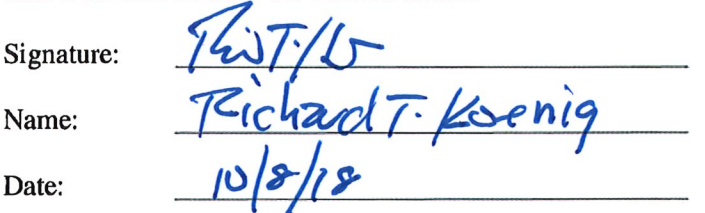 Signature:
Name: Richard T. Koenig
Date: 10/8/18